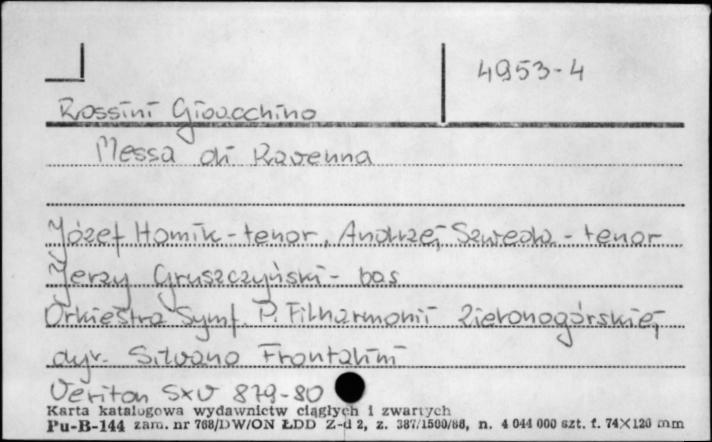 4953-4
Rossini Gioacchino
Messa di Ravenna
Józef Homik - tenor, Andrzej Szweda - tenor
Jerzy Gruszczyński - bas
Orkiestra Symf. P. Filharmonii Zielonogórskiej
dyr. Silvano Frontalini
Veriton SXV 879-80
Karta katalogowa wydawnictw ciągłych i zwartych
Pu-B-144 zam. nr 768/DW/ON ŁDD Z-d 2, z. 387/1500/88, n. 4 044 000 szt. f. 74×120 mm